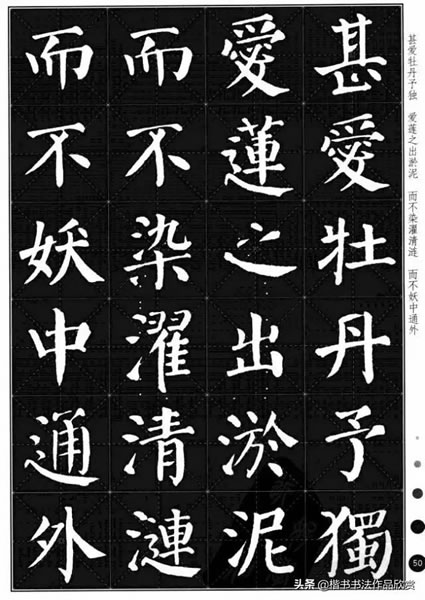 甚愛牡丹予獨
愛蓮之出淤泥
而不染濯清漣
而不妖中通外
甚爱牡丹予独 爱莲之出淤泥 而不染濯清涟 而不妖中通外
50
头条 @楷书书法作品欣赏